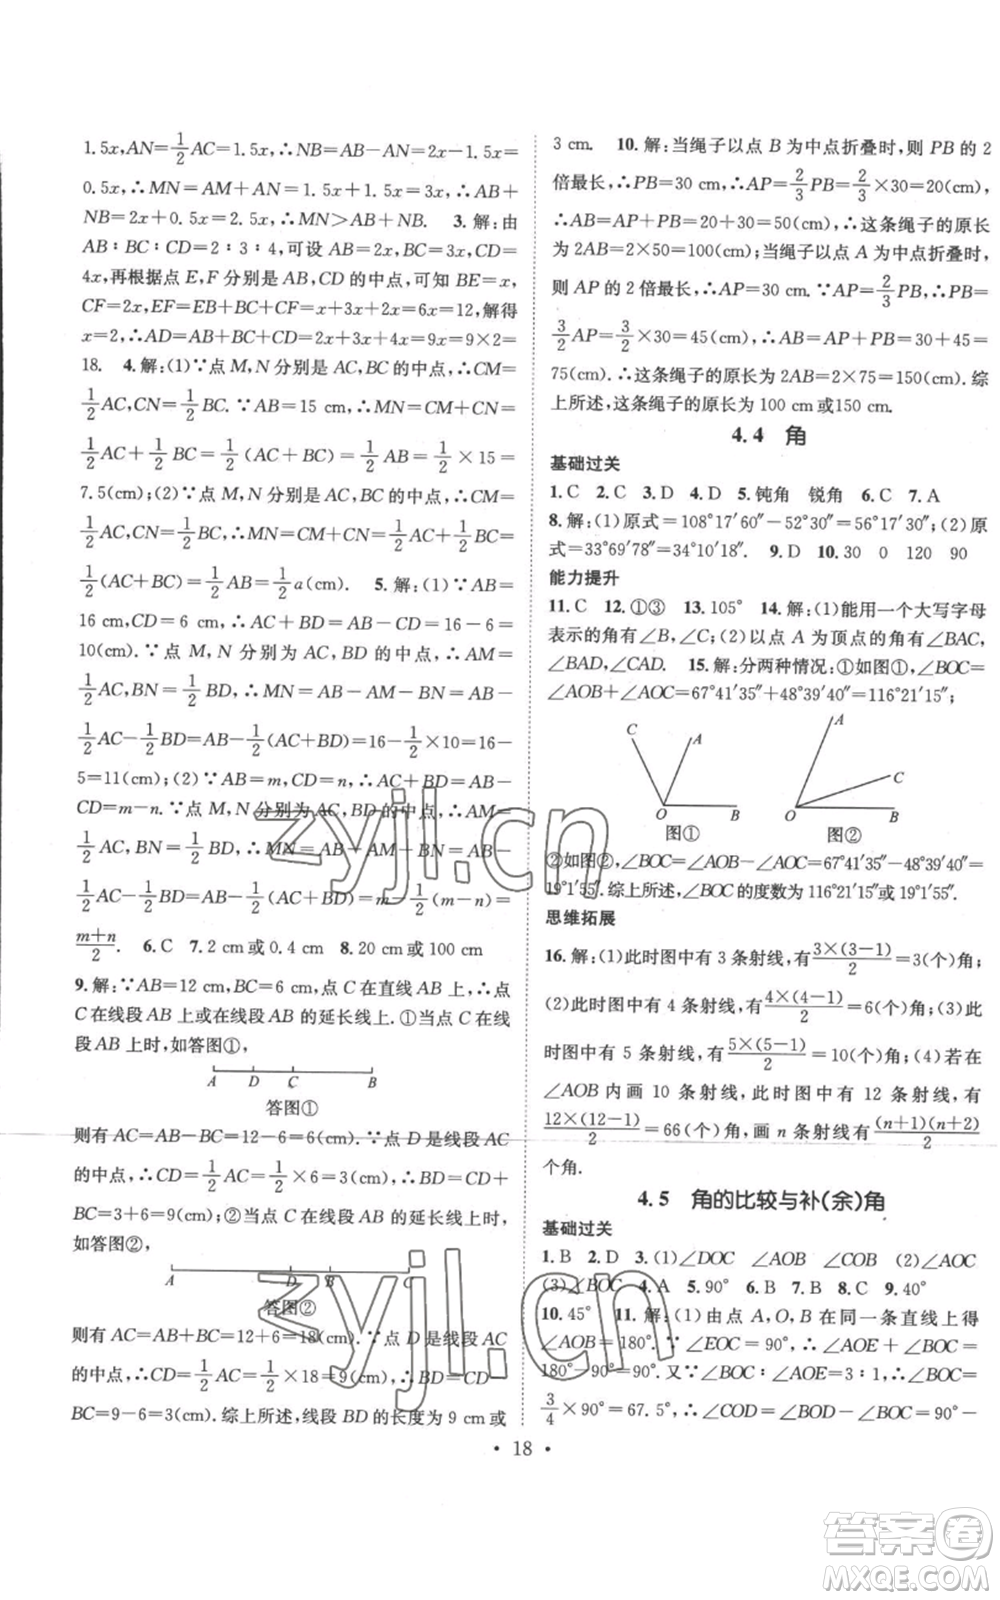 1.5x,AN=1/2AC=1.5x,∴NB=AB-AN=2x-1.5x=
0.5x,∴MN=AM+AN=1.5x+1.5x=3x,∴AB+
NB=2x+0.5x=2.5x,∴MN>AB+NB. 3.解:由
AB∶BC∶CD=2∶3∶4,可设AB=2x,BC=3x,CD=
4x,再根据点E,F分别是AB,CD的中点,可知BE=x,
CF=2x,EF=EB+BC+CF=x+3x+2x=6x=12,解得
x=2,∴AD=AB+BC+CD=2x+3x+4x=9x=9×2=
18. 4.解:(1)∵点M,N分别是AC,BC的中点,∴CM=
1/2AC,CN=1/2BC.∵AB=15 cm,∴MN=CM+CN=
1/2AC+1/2BC=1/2(AC+BC)=1/2AB=1/2×15=
7.5(cm);(2)∵点M,N分别是AC,BC的中点,∴CM=
1/2AC,CN=1/2BC.∴MN=CM+CN=1/2AC+1/2BC=
1/2(AC+BC)=1/2AB=1/2a(cm). 5.解:(1)∵AB=
16 cm,CD=6 cm,∴AC+BD=AB-CD=16-6=
10(cm).∵点M,N分别是AC,BD的中点,∴AM=
1/2AC,BN=1/2BD.∴MN=AB-AM-BN=AB-
1/2AC-1/2BD=AB-1/2(AC+BD)=16-1/2×10=16-
5=11(cm);(2)∵AB=m,CD=n,∴AC+BD=AB-
CD=m-n.∵点M,N分别为AC,BD的中点,∴AM=
1/2AC,BN=1/2BD.∴MN=AB-AM-BN=AB-
1/2AC-1/2BD=AB-1/2(AC+BD)=m-1/2(m-n)=
(m+n)/2. 6.C 7.2 cm或0.4 cm 8.20 cm或100 cm
9.解:∵AB=12 cm,BC=6 cm,点C在直线AB上,∴点
C在线段AB上或在线段AB的延长线上.①当点C在线
段AB上时,如答图①,
A D C B
答图①
则有AC=AB-BC=12-6=6(cm).∵点D是线段AC
的中点,∴CD=1/2AC=1/2×6=3(cm),∴BD=CD+
BC=3+6=9(cm);②当点C在线段AB的延长线上时,
如答图②,
A D B C
答图②
则有AC=AB+BC=12+6=18(cm).∵点D是线段AC
的中点,∴CD=1/2AC=1/2×18=9(cm),∴BD=CD-
BC=9-6=3(cm).综上所述,线段BD的长度为9 cm或
3 cm. 10.解:当绳子以点B为中点折叠时,则PB的2
倍最长,∴PB=30 cm,∴AP=2/3PB=2/3×30=20(cm),
∴AB=AP+PB=20+30=50(cm),∴这条绳子的原长
为2AB=2×50=100(cm);当绳子以点A为中点折叠时,
则AP的2倍最长,∴AP=30 cm.∵AP=2/3PB,∴PB=
3/2AP=3/2×30=45(cm),∴AB=AP+PB=30+45=
75(cm).∴这条绳子的原长为2AB=2×75=150(cm).综
上所述,这条绳子的原长为100 cm或150 cm.
4.4 角
基础过关
1.C 2.C 3.D 4.D 5.钝角 锐角 6.C 7.A
8.解:(1)原式=108°17′60″-52°30″=56°17′30″;(2)原
式=33°69′78″=34°10′18″. 9.D 10.30 0 120 90
能力提升
11.C 12.①③ 13.105° 14.解:(1)能用一个大写字母
表示的角有∠B,∠C;(2)以点A为顶点的角有∠BAC,
∠BAD,∠CAD. 15.解:分两种情况:①如图①,∠BOC=
∠AOB+∠AOC=67°41′35″+48°39′40″=116°21′15″;
C A O B
图①
A C O B
图②
②如图②,∠BOC=∠AOB-∠AOC=67°41′35″-48°39′40″=
19°1′55″.综上所述,∠BOC的度数为116°21′15″或19°1′55″.
思维拓展
16.解:(1)此时图中有3条射线,有3×(3-1)/2=3(个)角;
(2)此时图中有4条射线,有4×(4-1)/2=6(个)角;(3)此
时图中有5条射线,有5×(5-1)/2=10(个)角;(4)若在
∠AOB内画10条射线,此时图中有12条射线,有
12×(12-1)/2=66(个)角,画n条射线有(n+1)(n+2)/2
个角.
4.5 角的比较与补(余)角
基础过关
1.B 2.D 3.(1)∠DOC ∠AOB ∠COB (2)∠AOC
(3)∠BOC 4.A 5.90° 6.B 7.B 8.C 9.40°
10.45° 11.解:(1)由点A,O,B在同一条直线上得
∠AOB=180°.∵∠EOC=90°,∴∠AOE+∠BOC=
180°-90°=90°.又∵∠BOC∶∠AOE=3∶1,∴∠BOC=
3/4×90°=67.5°,∴∠COD=∠BOD-∠BOC=90°-
· 18 ·
zyjl.cn
zyjl.cn
答案圈
MXQE.COM